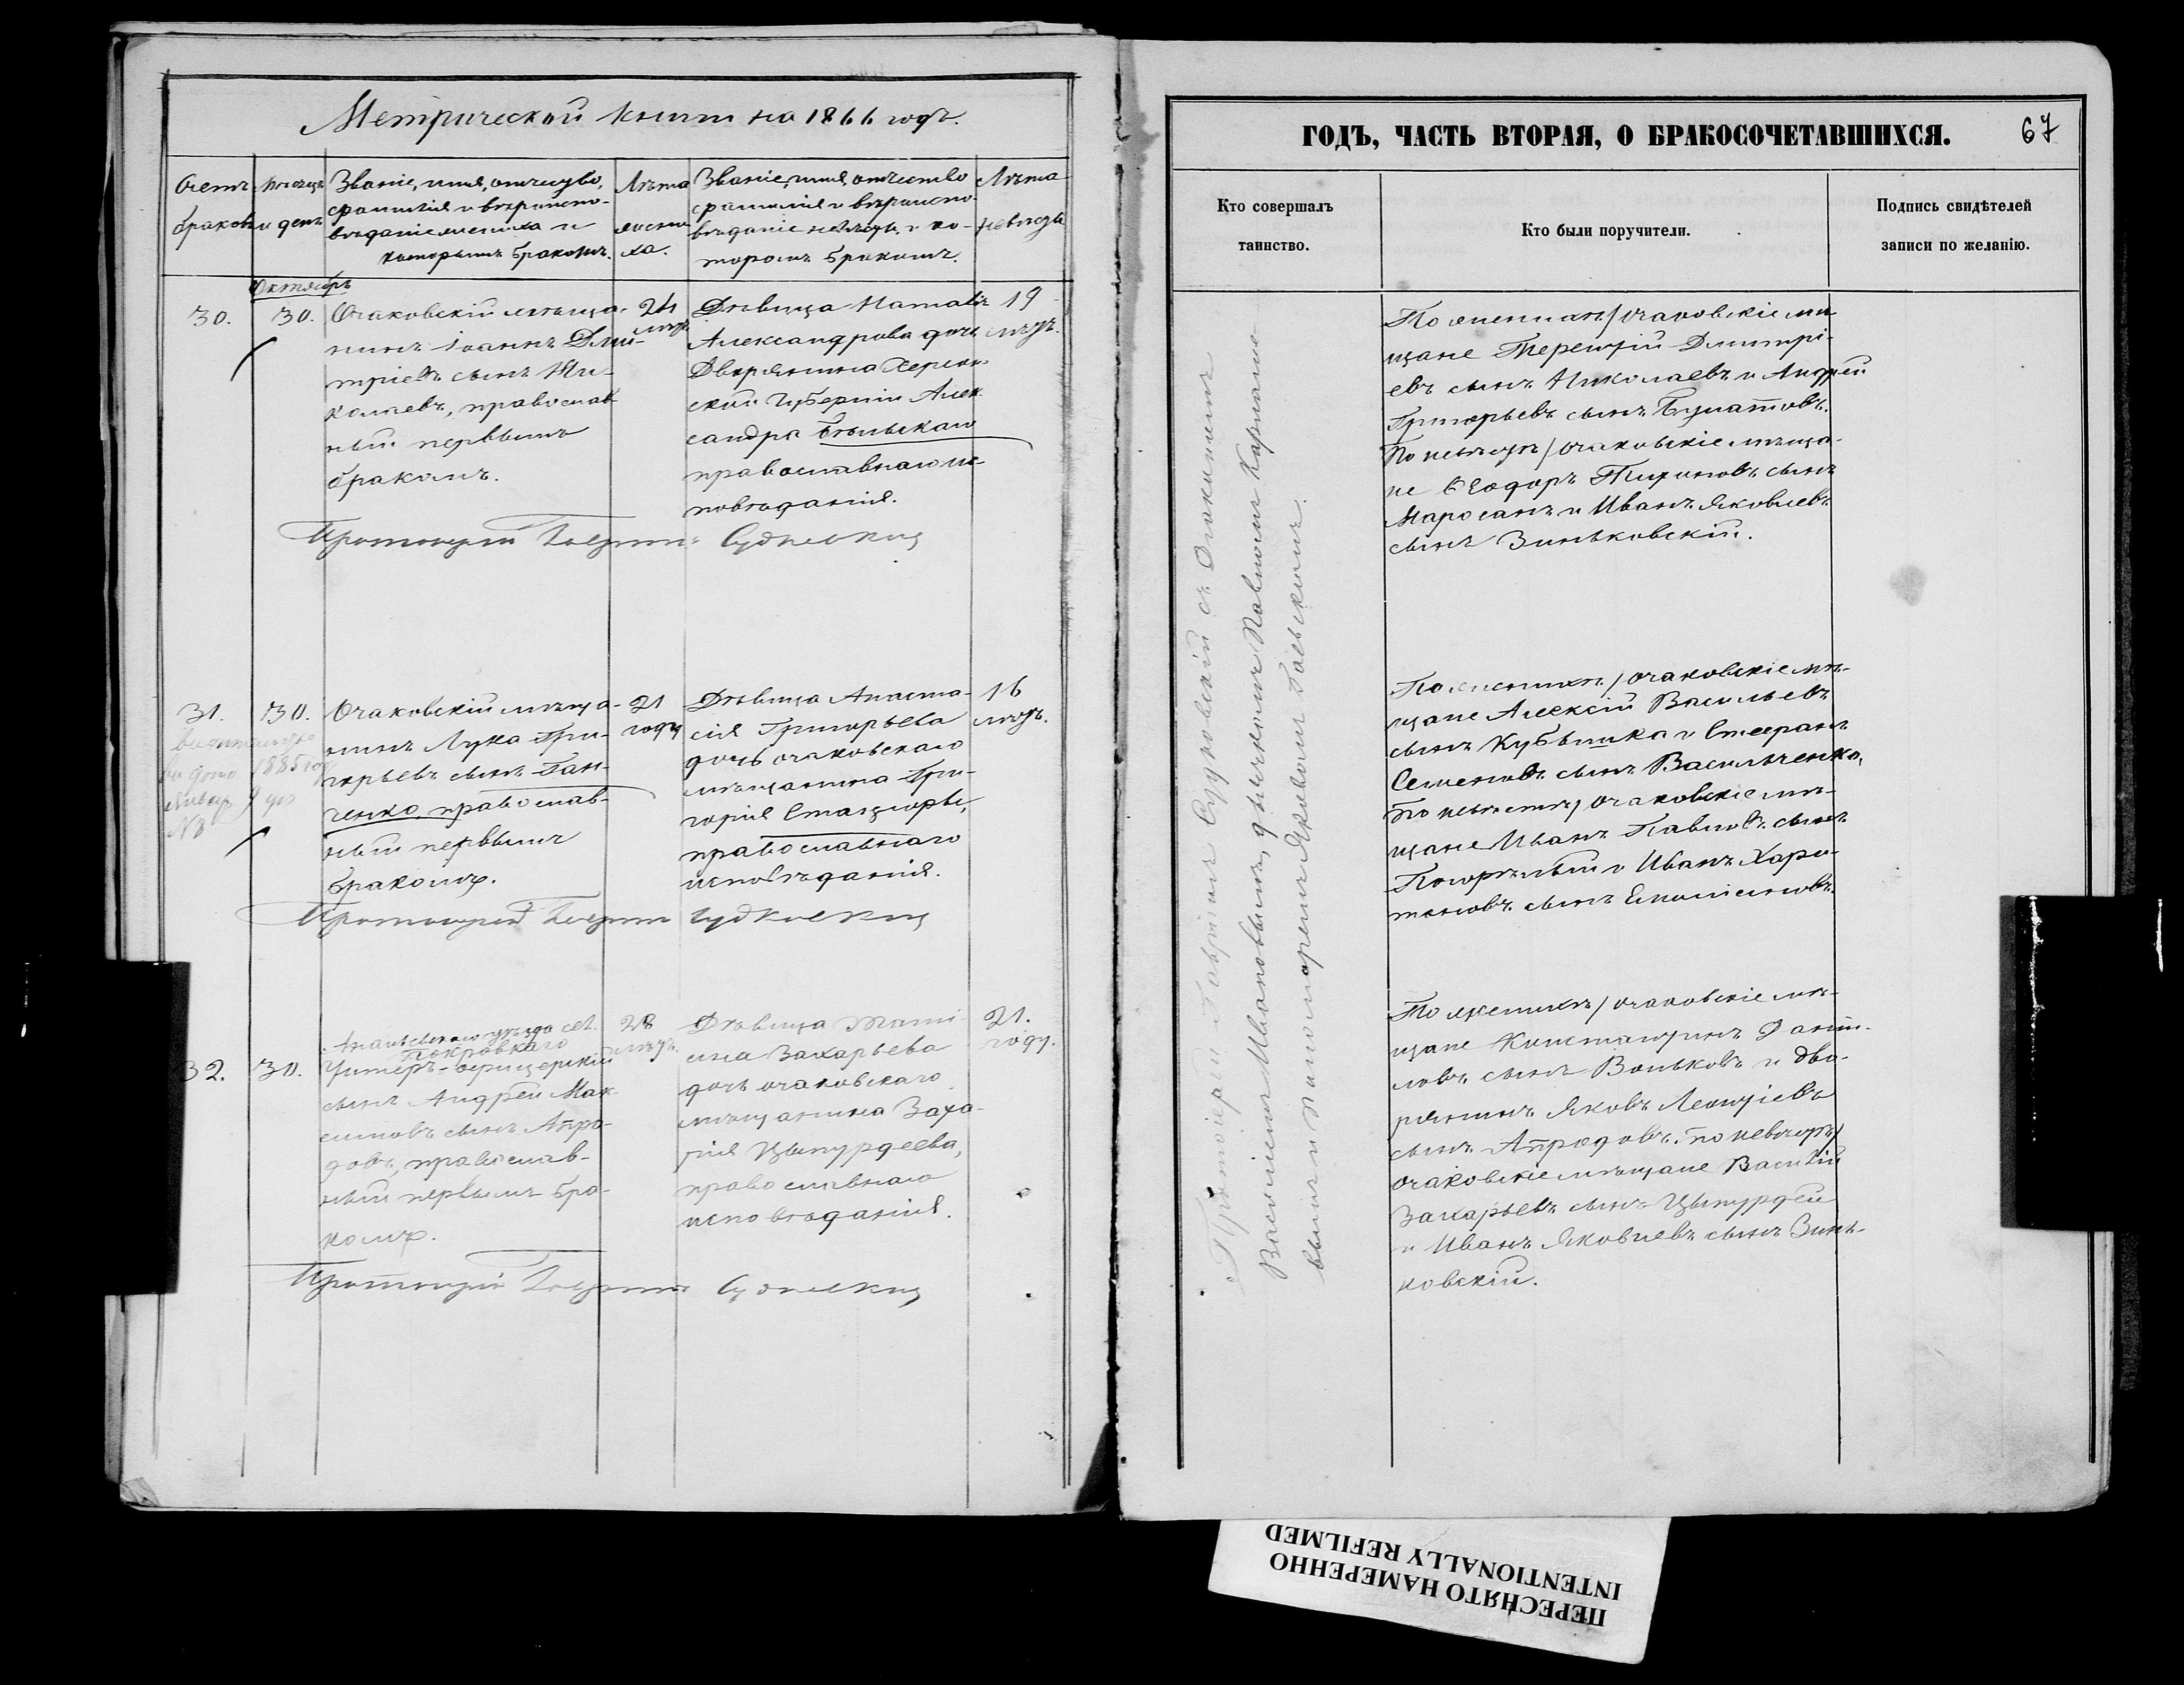 Метрической книги на 1866 годъ.
Счетъ браковъ
Месяцъ и день
Званіе, имя, отчество,
фамилія и вѣроиспо-
вѣданіе жениха и
которымъ бракомъ.
Лѣта
жени-
ха.
Званіе, имя, отчество
фамилія и вѣроиспо-
вѣданіе невѣсты и ко-
торымъ бракомъ.
Лѣта
невѣсты
Октябрь
30.
30.
Очаковскій мѣща-
нинъ Іоаннъ Дми-
тріевъ сынъ Ни-
колаевъ, православ-
ный первымъ
бракомъ.
24
лѣтъ
Дѣвица Наталія
Александрова дочь
Дворянина Херсон-
ской Губерніи Алек-
сандра Бѣльскаго
православнаго ис-
повѣданія.
19
лѣтъ.
Протоіерей Гавріилъ Судковскій
31.
30.
1885 год
Январ 9 дня
№
Очаковскій мѣща-
нинъ Лука Гри-
горьевъ сынъ Ган-
ченко, православ-
ный первымъ
бракомъ.
21
годъ
Дѣвица Анаста-
сія Григорьева
дочь очаковскаго
мѣщанина Гри-
горія
православнаго
исповѣданія.
16
лѣтъ.
Протоіерей Гавріилъ Судковскій
32.
30.
Ананьевскаго уѣзда сел.
Покровкаго
Унтеръ-офицерскій
сынъ Андрей Мак-
симовъ сынъ Апро-
довъ, православ-
ный первымъ бра-
комъ.
28
лѣтъ.
Дѣвица Таті-
ана Захарьева
дочь очаковскаго
мѣщанина Заха-
рія Цынурдеева,
православнаго
исповѣданія.
21.
году.
Протоіерей Гавріилъ Судковскій
ГОДЪ, ЧАСТЬ ВТОРАЯ, О БРАКОСОЧЕТАВШИХСЯ.
67
Кто совершалъ
таинство.
Кто были поручители.
Подпись свидѣтелей
записи по желанію.
Протоіерей Гавріилъ Судковскій съ
Василіемъ Ивановымъ, дьячкомъ Павломъ
вымъ и пономаремъ Яковомъ Гаевскимъ.
По женихѣ / очаковскіе мѣ-
щане Терентій Дмитрі-
евъ сынъ Николаевъ и Андрей
Григорьевъ сынъ Булатовъ.
По невѣстѣ / очаковскіе мѣща-
не Ѳеодоръ Тихоновъ сынъ
Маросанъ и Иванъ Яковлевъ
сынъ Зиньковскій.
По женихѣ / очаковскіе мѣ-
щане Алексій Васильевъ
сынъ Кубышка и Стефанъ
Семеновъ сынъ Васильченко,
По невѣстѣ / очаковскіе мѣ-
щане Иванъ Павловъ сынъ
Погорѣлый и Иванъ Хари-
тоновъ сынъ
По женихѣ / очаковскіе мѣ-
щане Константинъ Дании-
ловъ сынъ Волковъ и дво-
рянинъ Яковъ Леонтіевъ
сынъ Апродовъ. по невѣстѣ /
очаковскіе мѣщане Василій
Захарьевъ сынъ Цынурдей
и Иванъ Яковлевъ сынъ Зинь-
ковскій.
ПЕРЕСНЯТО НАМЕРЕННО
INTENTIONALLY REFILMED